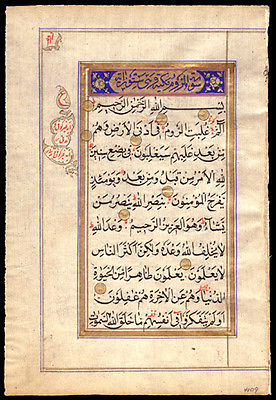 سورة الروم مكية وهي ستون آية
بسم الله الرحمن الرحيم
الم غلبت الروم في أدنى الأرض وهم
من بعد غلبهم سيغلبون في بضع سنين
لله الأمر من قبل ومن بعد ويومئذ
يفرح المؤمنون بنصر الله ينصر من
يشاء وهو العزيز الرحيم وعد الله
لا يخلف الله وعده ولكن أكثر الناس
لا يعلمون يعلمون ظاهرا من الحيوة
الدنيا وهم عن الآخرة هم غفلون
أولم يتفكروا في أنفسهم ما خلق الله السموات
4109